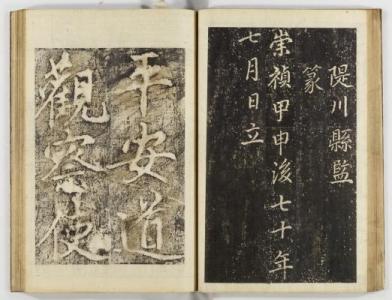 隄川縣監
篆
崇禎甲申後七十年
七月日立
平安道
觀察使